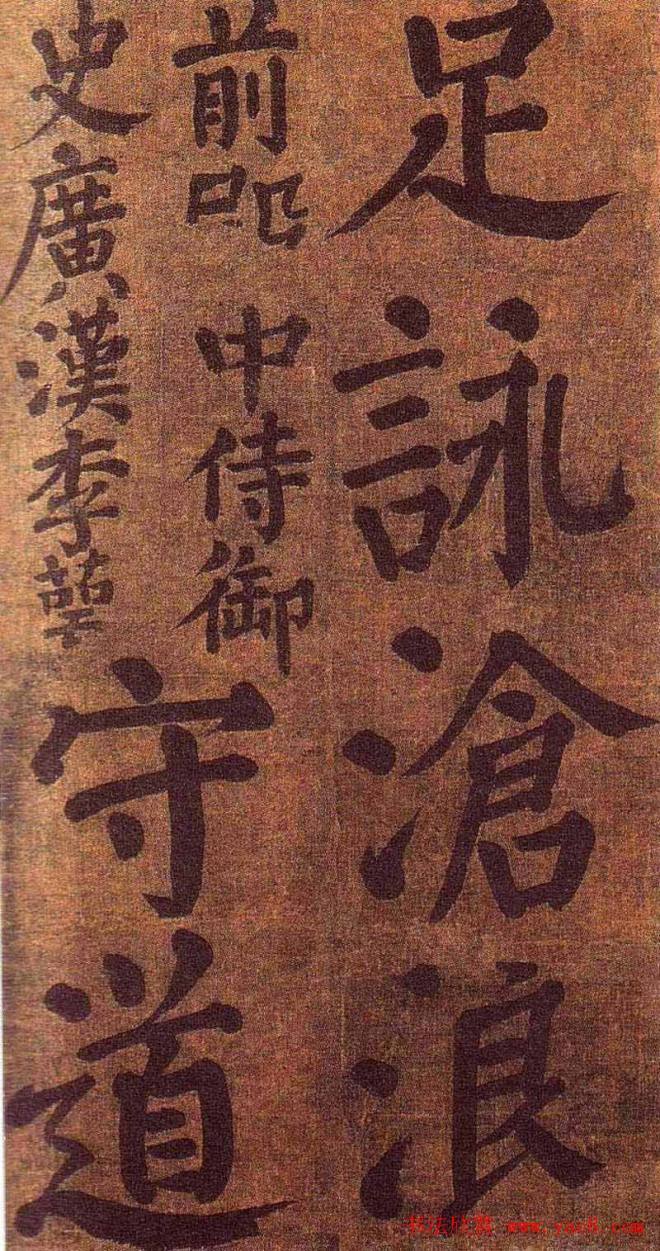 足詠滄浪
前中侍御
史廣漢李
守道
书法欣赏 www.yac8.com